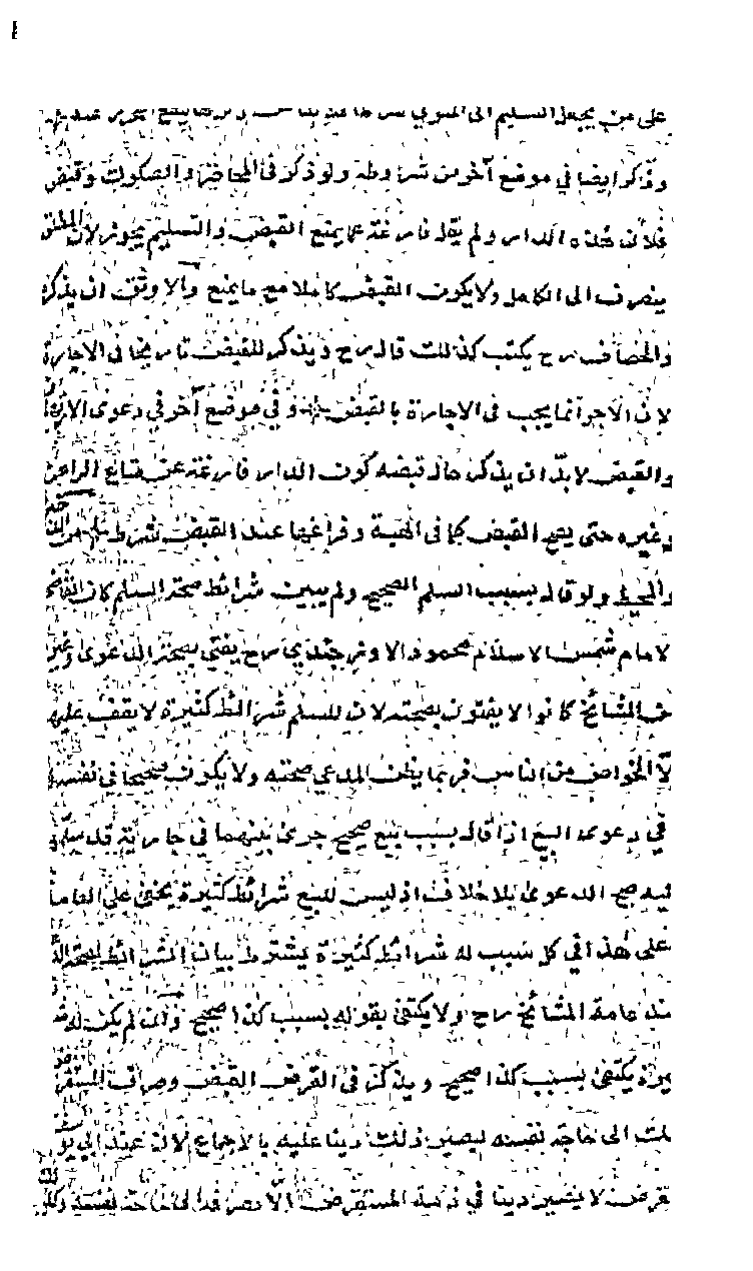 على من يجعل التسليم الى
وذكر ايضا في موضع آخر من شروطه ولو ذكر في المحاضر والصكوك وقبض
فلان هذه الدار ولم يقل فارغة عما يمنع القبض والتسليم يجوز لان المطلق
ينصرف الى الكامل ولا يكون القبض كاملا مع ما يمنع والاوثق ان يذكره
والخصاف رح يكتب كذلك قال رح ويذكر للقبض تاريخا فى الاجارة
لان الاجر انما يجب فى الاجارة بالقبض وفي موضع آخر في دعوى
والقبض لا بد ان يذكر حال قبضه كون الدار فارغة عن متاع الراهن
وغيره حتى يصح القبض كما فى الهبة وفراغها عند القبض شرط
والمحيط ولو قال بسبب السلم الصحيح ولم يبين شرائط صحة السلم كان
لامام شمس الاسلام محمود الاوزجندي رح يفتي بصحة الدعوى وغيره
من المشائخ كانوا لا يفتون بصحته لان للسلم شرائط كثيرة لا يقف عليها
لا الخواص من الناس فربما يظن المدعي صحته ولا يكون صحيحا في نفسه
في دعوى البيع اذا قال بسبب بيع صحيح جرى بينهما في جارية
صح الدعوى بلا خلاف اذ ليس للبيع شرائط كثيرة يخفى على العامة
على هذا في كل سبب له شرائط كثيرة يشترط بيان الشرائط لصحة
عند عامة المشائخ رح ولا يكتفى بقوله بسبب كذا صحيح وان لم يكن له
يكتفى بسبب كذا صحيح ويذكر فى القرض القبض وصرف المستقرض
ذلك الى حاجة نفسه ليصير ذلك دينا عليه بالاجماع لان عند ابي
القرض لا يصير دينا في ذمة المستقرض الا بصرفه الى حاجة نفسه